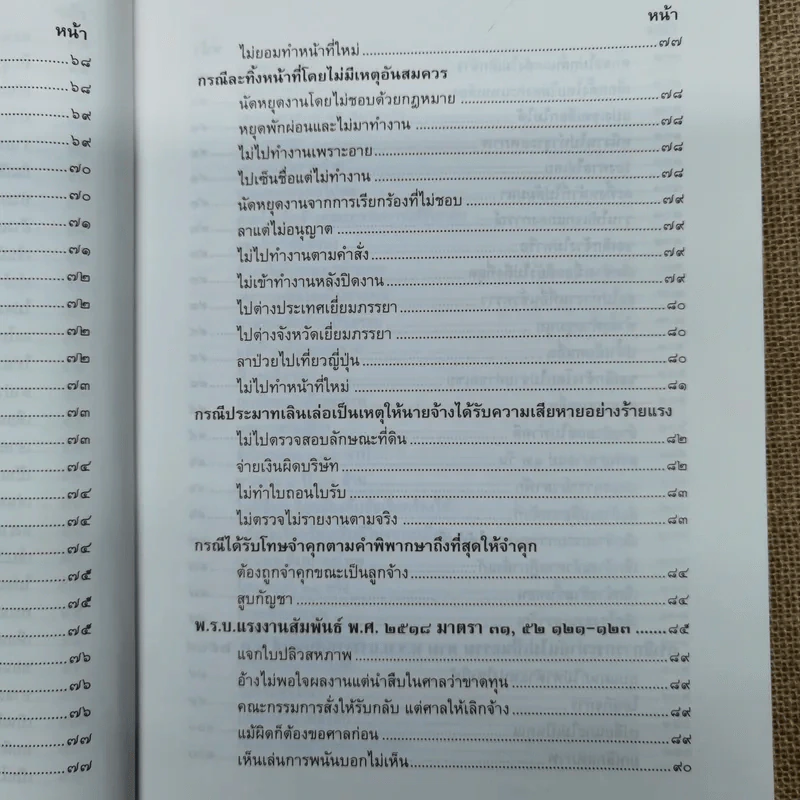 หน้า
๖๘
๖๘
๖๙
๖๙
๗๐
๗๐
๗๑
๗๑
๗๒
๗๒
๗๒
๗๒
๗๓
๗๓
๗๓
๗๔
๗๔
๗๔
๗๔
๗๕
๗๕
๗๕
๗๖
๗๖
๗๖
๗๗
๗๗
หน้า
ไม่ยอมทำหน้าที่ใหม่ ๗๗
กรณีละทิ้งหน้าที่โดยไม่มีเหตุอันสมควร
นัดหยุดงานโดยไม่ชอบด้วยกฎหมาย ๗๘
หยุดพักผ่อนและไม่มาทำงาน ๗๘
ไม่ไปทำงานเพราะอาย ๗๘
ไปเซ็นชื่อแต่ไม่ทำงาน ๗๘
นัดหยุดงานจากการเรียกร้องที่ไม่ชอบ ๗๙
ลาแต่ไม่อนุญาต ๗๙
ไม่ไปทำงานตามคำสั่ง ๗๙
ไม่เข้าทำงานหลังปิดงาน ๗๙
ไปต่างประเทศเยี่ยมภรรยา ๘๐
ไปต่างจังหวัดเยี่ยมภรรยา ๘๐
ลาป่วยไปเที่ยวญี่ปุ่น ๘๐
ไม่ไปทำหน้าที่ใหม่ ๘๑
กรณีประมาทเลินเล่อเป็นเหตุให้นายจ้างได้รับความเสียหายอย่างร้ายแรง
ไม่ไปตรวจสอบลักษณะที่ดิน ๘๒
จ่ายเงินผิดบริษัท ๘๒
ไม่ทำใบถอนใบรับ ๘๓
ไม่ตรวจไม่รายงานตามจริง ๘๓
กรณีได้รับโทษจำคุกตามคำพิพากษาถึงที่สุดให้จำคุก
ต้องถูกจำคุกขณะเป็นลูกจ้าง ๘๔
สูบกัญชา ๘๔
พ.ร.บ.แรงงานสัมพันธ์ พ.ศ. ๒๕๑๘ มาตรา ๓๑, ๕๒ ๑๒๑-๑๒๓ ๘๕
แจกใบปลิวสหภาพ ๘๙
อ้างไม่พอใจผลงานแต่นำสืบในศาลว่าขาดทุน ๘๙
คณะกรรมการสั่งให้รับกลับ แต่ศาลให้เลิกจ้าง ๘๙
แม้ผิดก็ต้องขอศาลก่อน ๘๙
เห็นเล่นการพนันบอกไม่เห็น ๙๐